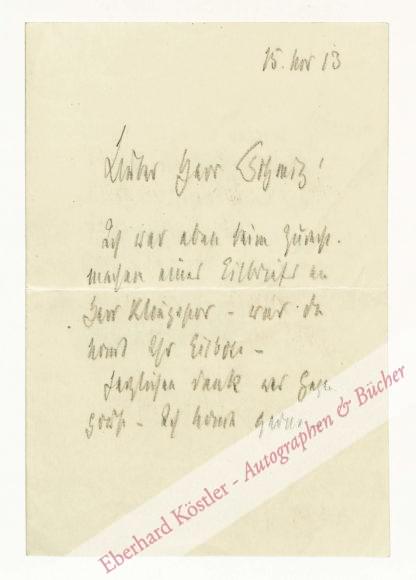 15. Nov 13
Lieber Herr Schmitz!
Ich war eben beim Zurecht-
machen eines Eilbriefs an
Herr Klingspor - und da
kommt Ihr Eilbote -
Herzlichen Dank
Ich komme gerne
Eberhard Köstler - Autographen & Bücher